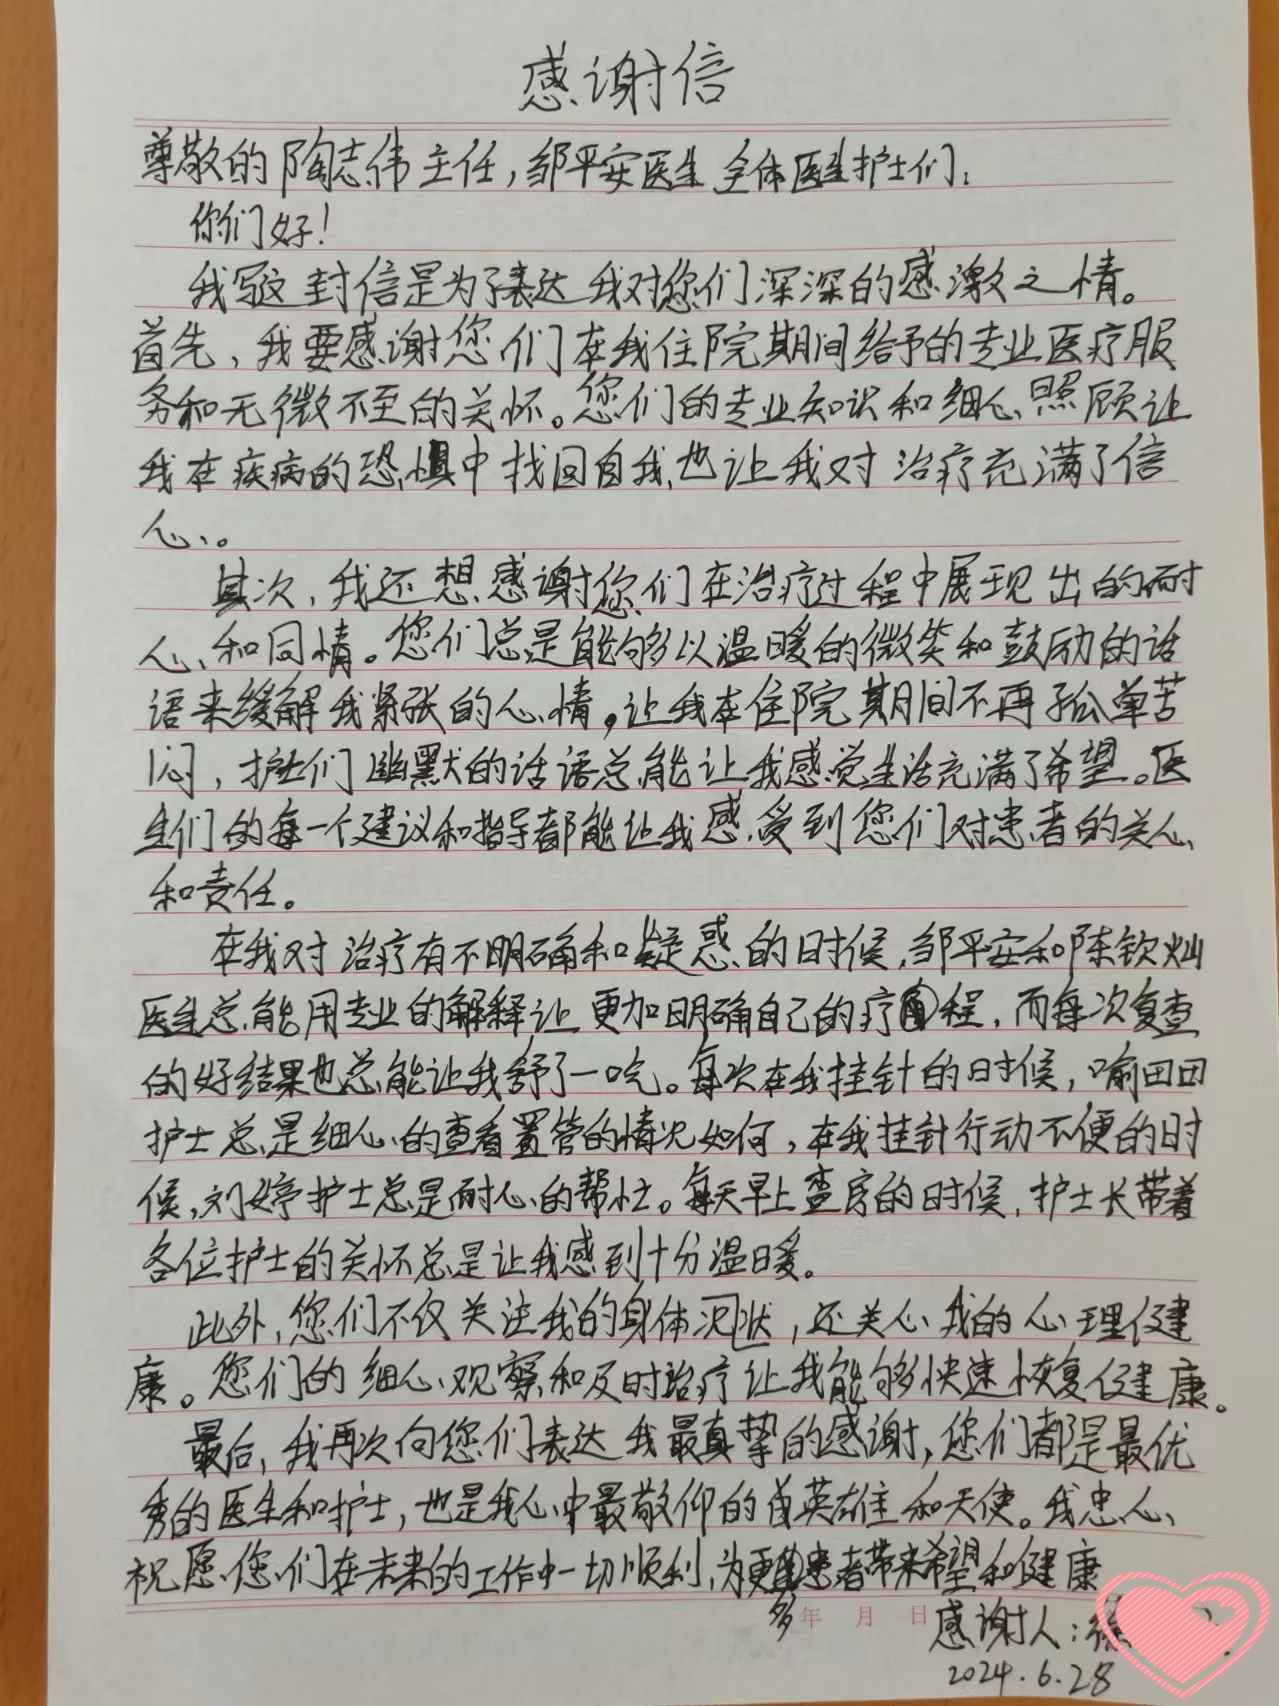 感谢信
尊敬的陶志伟主任，邹平安医生、全体医生护士们：
你们好！
我写这封信是为了表达我对您们深深的感激之情。
首先，我要感谢您们在我住院期间给予的专业医疗服
务和无微不至的关怀。您们的专业知识和细心照顾让
我在疾病的恐惧中找回自我，也让我对治疗充满了信
心。
其次，我还想感谢您们在治疗过程中展现出的耐
心和同情。您们总是能够以温暖的微笑和鼓励的话
语来缓解我紧张的心情。让我在住院期间不再孤单苦
闷，护士们幽默的话语总能让我感觉生活充满了希望。医
生们的每一个建议和指导都能让我感受到您们对患者的关心
和责任。
在我对治疗有不明确和疑惑的时候，邹平安和陈钦灿
医生总能用专业的解释让更加明确自己的疗程，而每次复查
的好结果也总能让我舒了一口气。每次在我挂针的时候，喻田田
护士总是细心的查看置管的情况如何，在我挂针行动不便的时
候，刘婷护士总是耐心的帮忙。每天早上查房的时候，护士长带着
各位护士的关怀总是让我感到十分温暖。
此外，您们不仅关注我的身体状况，还关心我的心理健
康。您们的细心观察和及时治疗让我能够快速恢复健康。
最后，我再次向您们表达我最真挚的感谢，您们都是最优
秀的医生和护士，也是我心中最敬仰的英雄和天使。我忠心
祝愿您们在未来的工作中一切顺利，为更多患者带来希望和健康
年 月 日
感谢人：徐
2024.6.28